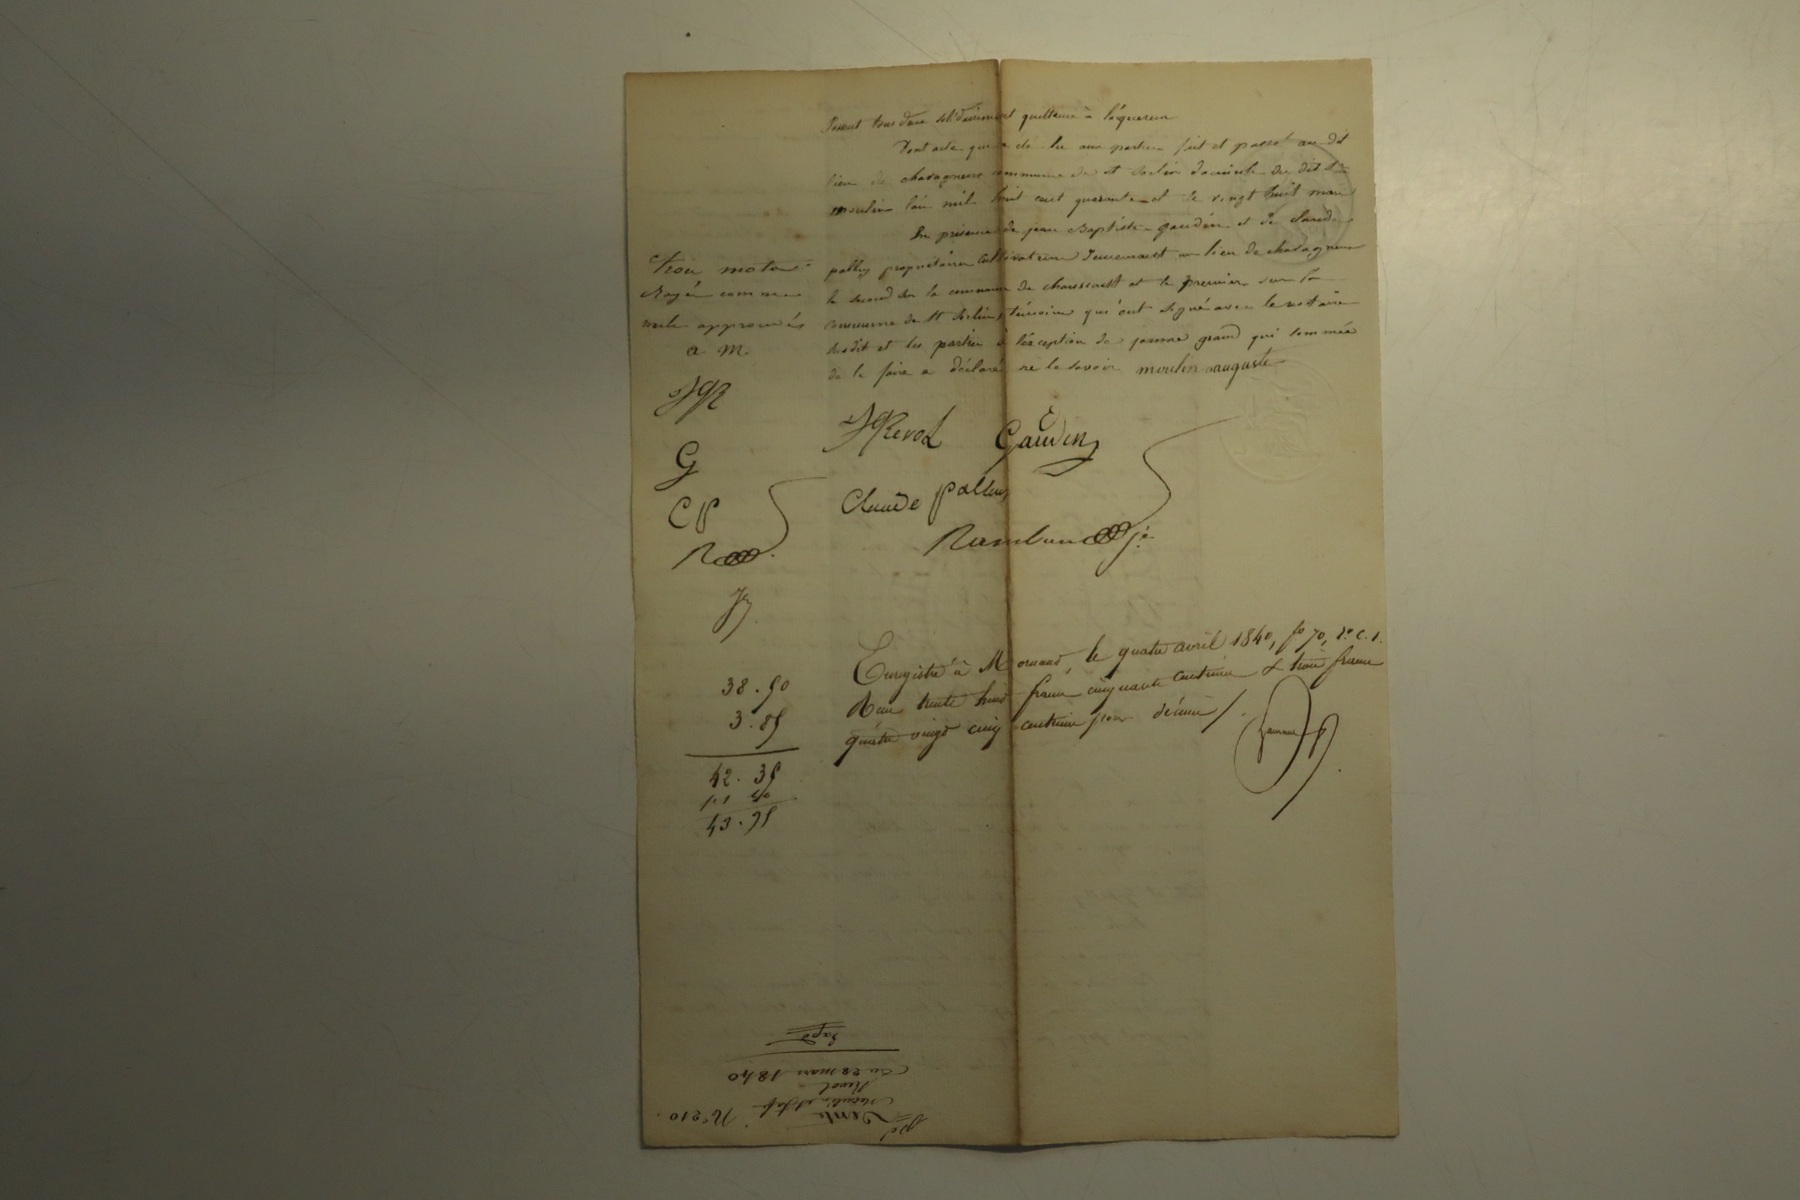 quittance à
Dont acte qui a été lu aux parties fait et passé au dit
lieu de chavagneux commune de St domicile du dit Sr
moulin l'an mil huit cent quarante et le vingt huit mars
En présence de jean Baptiste gaudin et de Claude
pallay propriétaires cultivateurs Demeurant au lieu de chavagneux
le second sur la commune de et le premier sur la
commune de St témoins qui ont signé avec le notaire
susdit et les parties à l'éxception de jeanne grand qui sommée
de le faire a déclaré ne le savoir moulin auguste
trois mots
Rayés comme
nuls approuvés
a m
JR
G
CP
R
JRevol Gaudin
Claude pallay
Enregistré à Mornand, le quatre avril 1840, fo 70, Ro c. 1.
Reçu trente huit francs cinquante centimes & trois francs
quatre vingt cinq centimes pour décime /.
38.50
3.85
42.35
1.40
43.75
Vente No 210.
Moulin et
Revol
Du 28 mars 1840